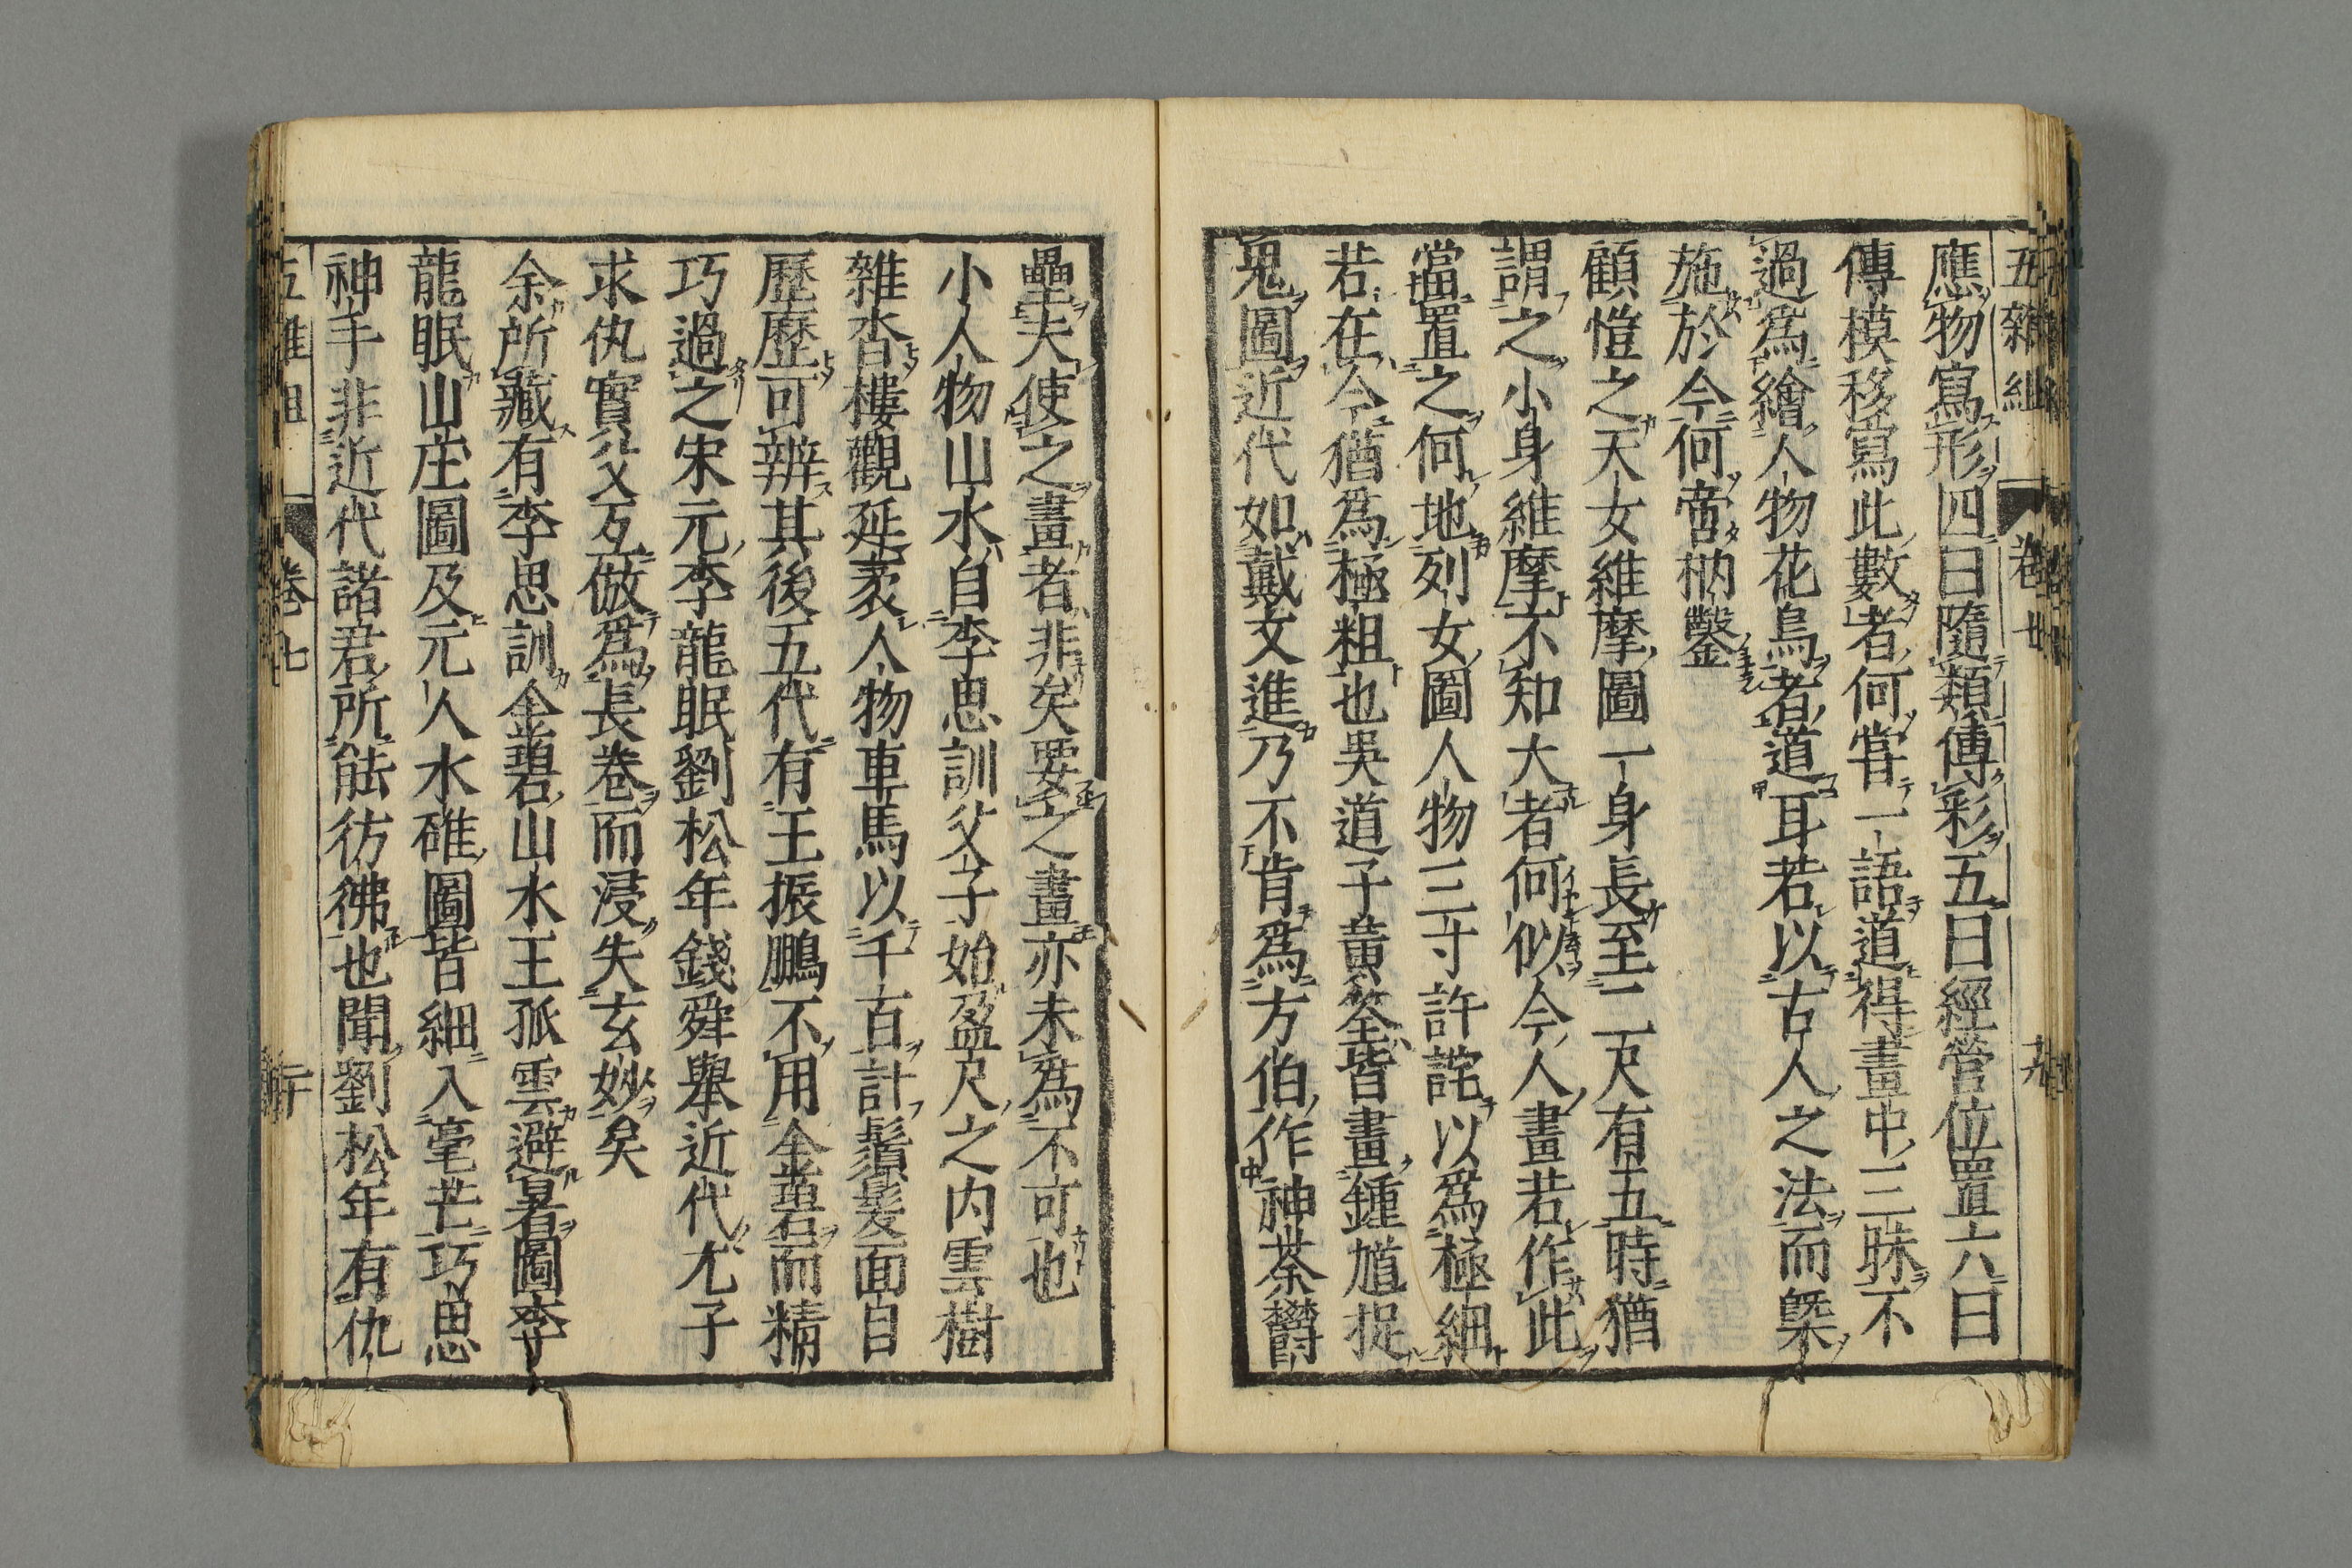 五雜組
卷七
應物寫形四曰隨類傅彩五曰經營位置六曰
傳模移寫此數者何嘗一語道得畫中三昧不
過爲繪人物花鳥者道耳若以古人之法而槩
施於今何啻枘鑿
顧愷之天女維摩圖一身長至二尺有五時猶
謂之小身維摩不知大者何似今人畫若作此
當置之何地列女圖人物三寸許詫以爲極細
若在今猶爲極粗也吳道子黃筌皆畫鍾馗捉
鬼圖近代如戴文進乃不肯爲方伯作神荼欝
壘夫使之畫者非矣要之畫亦未爲不可也
小人物山水自李思訓父子始盈尺之内雲樹
雜沓樓觀延袤人物車馬以千百計鬚髮面目
歷歷可辨其後五代有王振鵬不用金碧而精
巧過之宋元李龍眠劉松年錢舜舉近代尤子
求仇實父互倣爲長卷而浸失玄妙矣
余所藏有李思訓金碧山水王孤雲避暑圖李
龍眠山庄圖及元人水碓圖皆細入毫芒巧思
神手非近代諸君所能彷彿也聞劉松年有仇
卷七